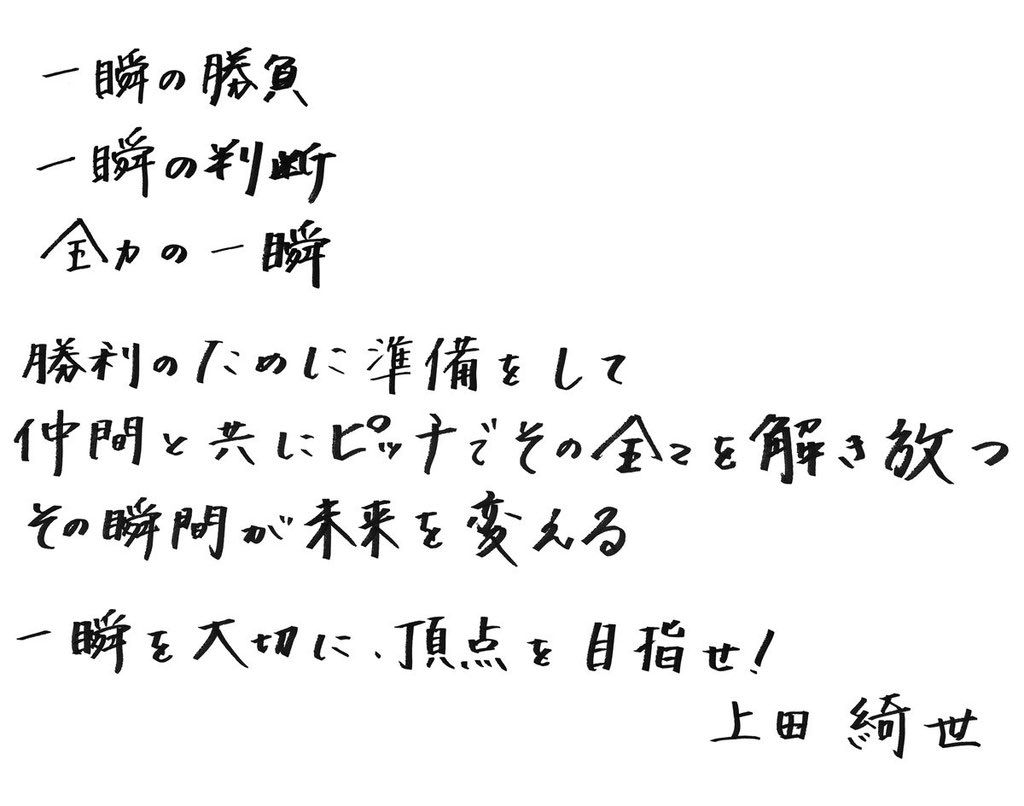 一瞬の勝負
一瞬の判断
全力の一瞬
勝利のために準備をして
仲間と共にピッチでその全てを解き放つ
その瞬間が未来を変える
一瞬を大切に、頂点を目指せ!
上田 綺世